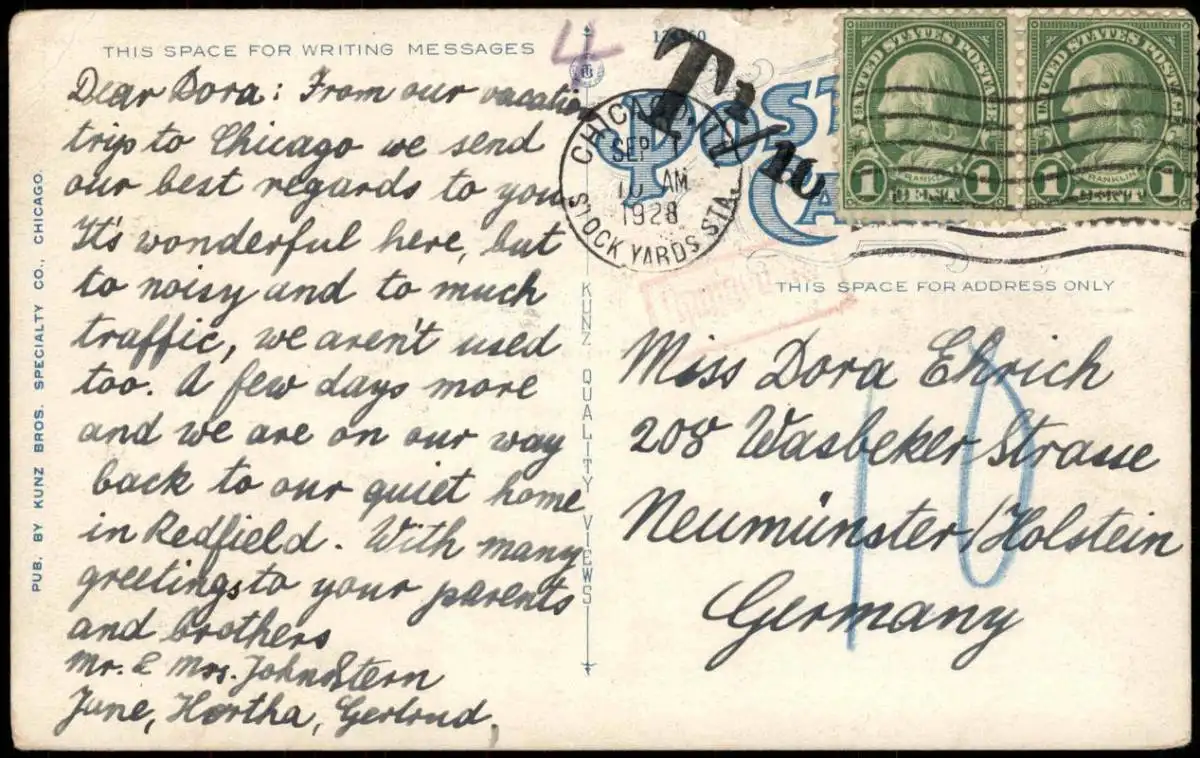 THIS SPACE FOR WRITING MESSAGES
Dear Dora: From our vacation
trip to Chicago we send
our best regards to you.
It's wonderful here, but
to noisy and to much
traffic, we aren't used
too. A few days more
and we are on our way
back to our quiet home
in Redfield. With many
greetings to your parents
and brothers
Mr. & Mrs. John Stern
June, Hertha, Gertrud.
PUB. BY KUNZ BROS. SPECIALTY CO., CHICAGO.
KUNZ QUALITY VIEWS
4
T 1/10
POST
CA
CHICAGO, ILL
SEP 1
10 AM
1928
STOCK YARDS STA.
UNITED STATES POSTAGE
FRANKLIN
1 1
UNITED STATES POSTAGE
FRANKLIN
1 1
THIS SPACE FOR ADDRESS ONLY
Miss Dora Ehrich
208 Wasbeker Strasse
Neumünster/Holstein
Germany
10